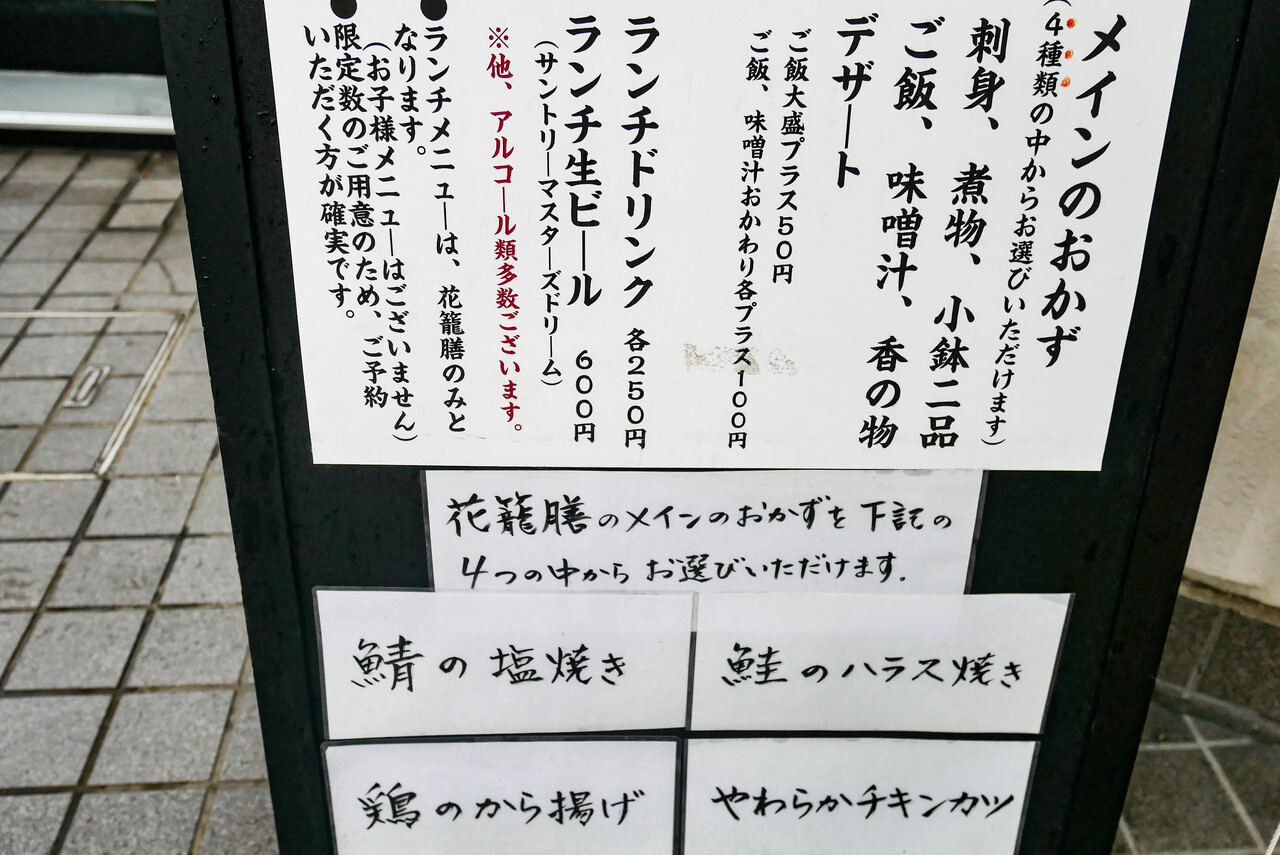 メインのおかず
（４種類の中からお選びいただけます）
刺身、煮物、小鉢二品
ご飯、味噌汁、香の物
デザート
ご飯大盛プラス５０円
ご飯、味噌汁おかわり各プラス１００円
ランチドリンク 各２５０円
ランチ生ビール ６００円
（サントリーマスターズドリーム）
※他、アルコール類多数ございます。
●ランチメニューは、花籠膳のみと
なります。
（お子様メニューはございません）
●限定数のご用意のため、ご予約
いただく方が確実です。
花籠膳のメインのおかずを下記の
4つの中からお選びいただけます。
鯖の塩焼き
鮭のハラス焼き
鶏のから揚げ
やわらかチキンカツ